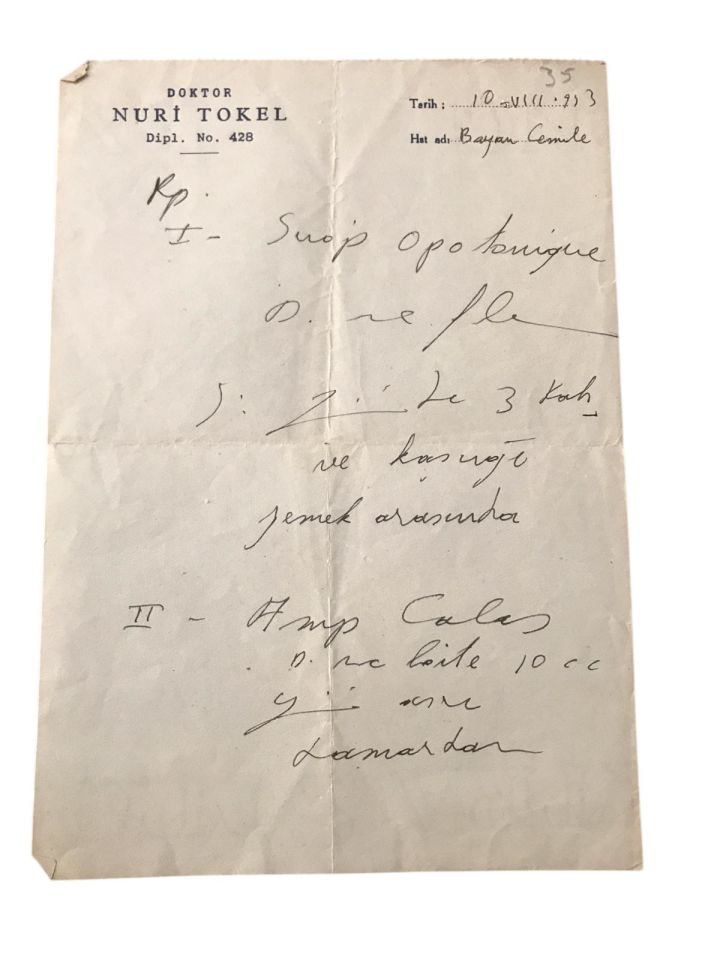 35
DOKTOR
NURİ TOKEL
Dipl. No. 428
Tarih : 10-VIII.953
Hst adı Bayan Cemile
Rp.
I- Sirop Opotonique
D. ne fle
S: de 3 kah
ve kaşığı
yemek arasında
II - Amp Calas
D. ne boite 10 cc
gün aşırı
damardan